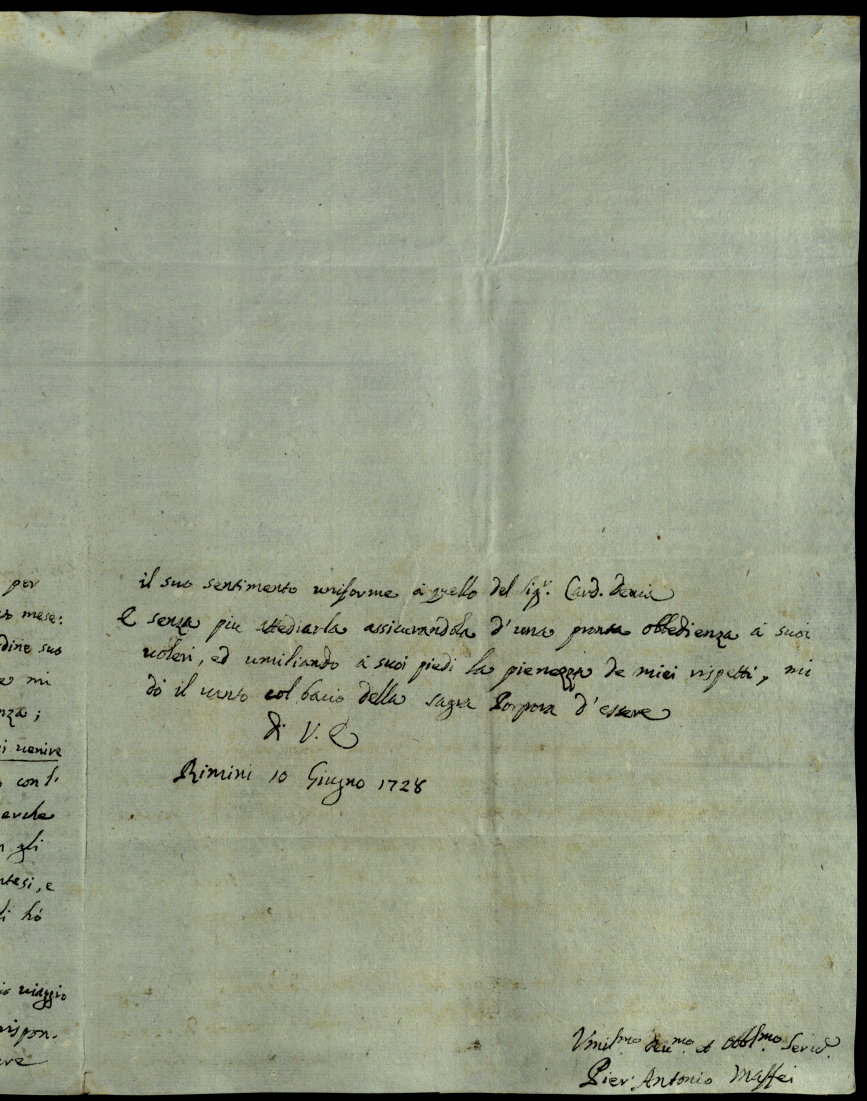 per
mese:
dine suo
e mi
nza;
i venire
con l'
perche
n gli
ntesi, e
li hó
viaggio
rispon.
ere
il suo sentimento uniforme á quello del Sigr. Card.
E senza piu attediarla assicurandola d'una pronta obbedienza á suoi
voleri, ed umiliando á suoi piedi la pienezza de miei rispetti, mi
dó il vanto col bacio della sagra Porpora d'essere
di V. E
Rimini 10 Giugno 1728
Umilmo. deumo. et Obblmo. Servid.
Pier' Antonio Maffei